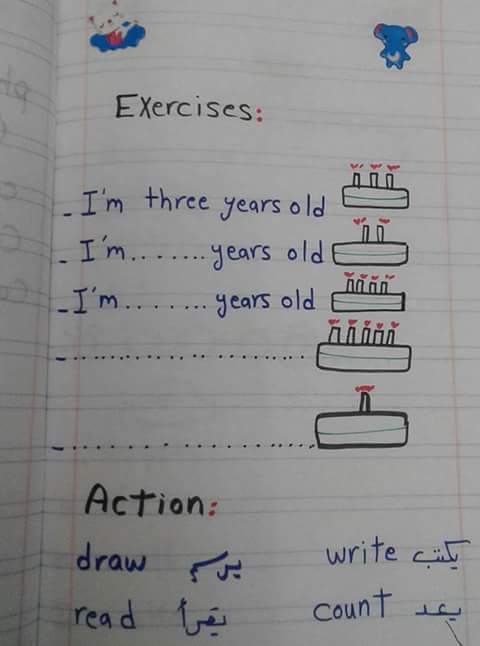 Exercises:
- I'm three years old
- I'm....... years old
- I'm........ years old
- .......................
- .......................
Action:
draw يرسم write يكتب
read يقرأ count يعد